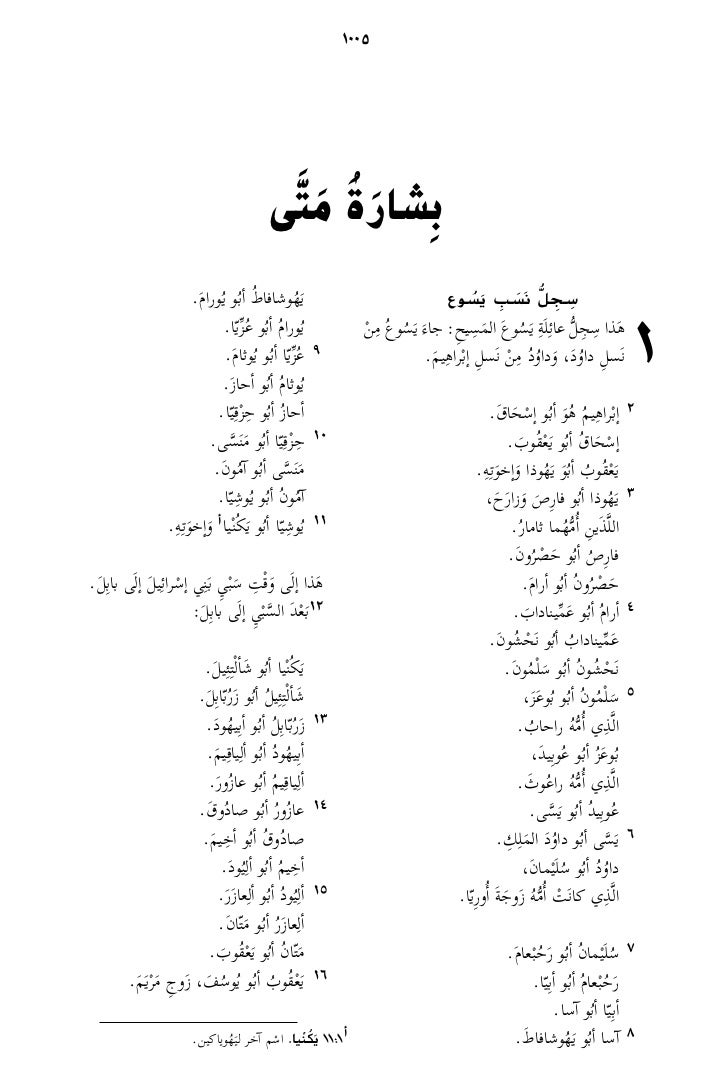 ١٠٠٥
بِشارَةُ مَتَّى
سِجِلُّ نَسَبِ يَسُوع
١ هَذا سِجِلُّ عائِلَةِ يَسُوعَ المَسِيحِ: جاءَ يَسُوعُ مِنْ
نَسلِ داوُدَ، وَداوُدُ مِنْ نَسلِ إبْراهِيمَ.
٢ إبْراهِيمُ هُوَ أبُو إسْحَاقَ.
إسْحَاقُ أبُو يَعْقُوبَ.
يَعْقُوبُ أبُوَ يَهُوذا وَإخوَتِهِ.
٣ يَهُوذا أبُو فارِصَ وَزارَحَ،
اللَّذَينِ أُمُّهُما ثامارُ.
فارِصُ أبُو حَصْرُونَ.
حَصْرُونُ أبُو أرامَ.
٤ أرامُ أبُو عَمِّينادابَ.
عَمِّينادابُ أبُو نَحْشُونَ.
نَحْشُونُ أبُو سَلْمُونَ.
٥ سَلْمُونُ أبُو بُوعَزَ،
الَّذِي أُمُّهُ راحابُ.
بُوعَزُ أبُو عُوبِيدَ،
الَّذِي أُمُّهُ راعُوثَ.
عُوبِيدُ أبُو يَسَّى.
٦ يَسَّى أبُو داوُدَ المَلِكِ.
داوُدُ أبُو سُلَيْمانَ،
الَّذِي كانَتْ أُمُّهُ زَوجَةَ أُورِيّا.
٧ سُلَيْمانُ أبُو رَحُبْعامَ.
رَحُبْعامُ أبُو أبِيّا.
أبِيّا أبُو آسا.
٨ آسا أبُو يَهُوشافاطَ.
يَهُوشافاطُ أبُو يُورامَ.
يُورامُ أبُو عُزِّيّا.
٩ عُزِّيّا أبُو يُوثامَ.
يُوثامُ أبُو أحازَ.
أحازُ أبُو حِزْقِيّا.
١٠ حِزْقِيّا أبُو مَنَسَّى.
مَنَسَّى أبُو آمُونَ.
آمُونُ أبُو يُوشِيّا.
١١ يُوشِيّا أبُو يَكُنْياأ وَإخوَتِهِ.
هَذا إلَى وَقْتِ سَبْيِ بَنِي إسْرائِيلَ إلَى بابِلَ.
١٢بَعْدَ السَّبْيِ إلَى بابِلَ:
يَكُنْيا أبُو شَألْتِئِيلَ.
شَألْتِئِيلُ أبُو زَرُبّابِلَ.
١٣ زَرُبّابِلُ أبُو أبِيهُودَ.
أبِيهُودُ أبُو ألِياقِيمَ.
ألِياقِيمُ أبُو عازُورَ.
١٤ عازُورُ أبُو صادُوقَ.
صادُوقُ أبُو أخِيمَ.
أخِيمُ أبُو ألِيُودَ.
١٥ ألِيُودُ أبُو ألِعازَرَ.
ألِعازَرُ أبُو مَتّانَ.
مَتّانُ أبُو يَعْقُوبَ.
١٦ يَعْقُوبُ أبُو يُوسُفَ، زَوجِ مَرْيَمَ.
أ١١:١ يَكُنْيا. اسْم آخر ليَهُوياكين.